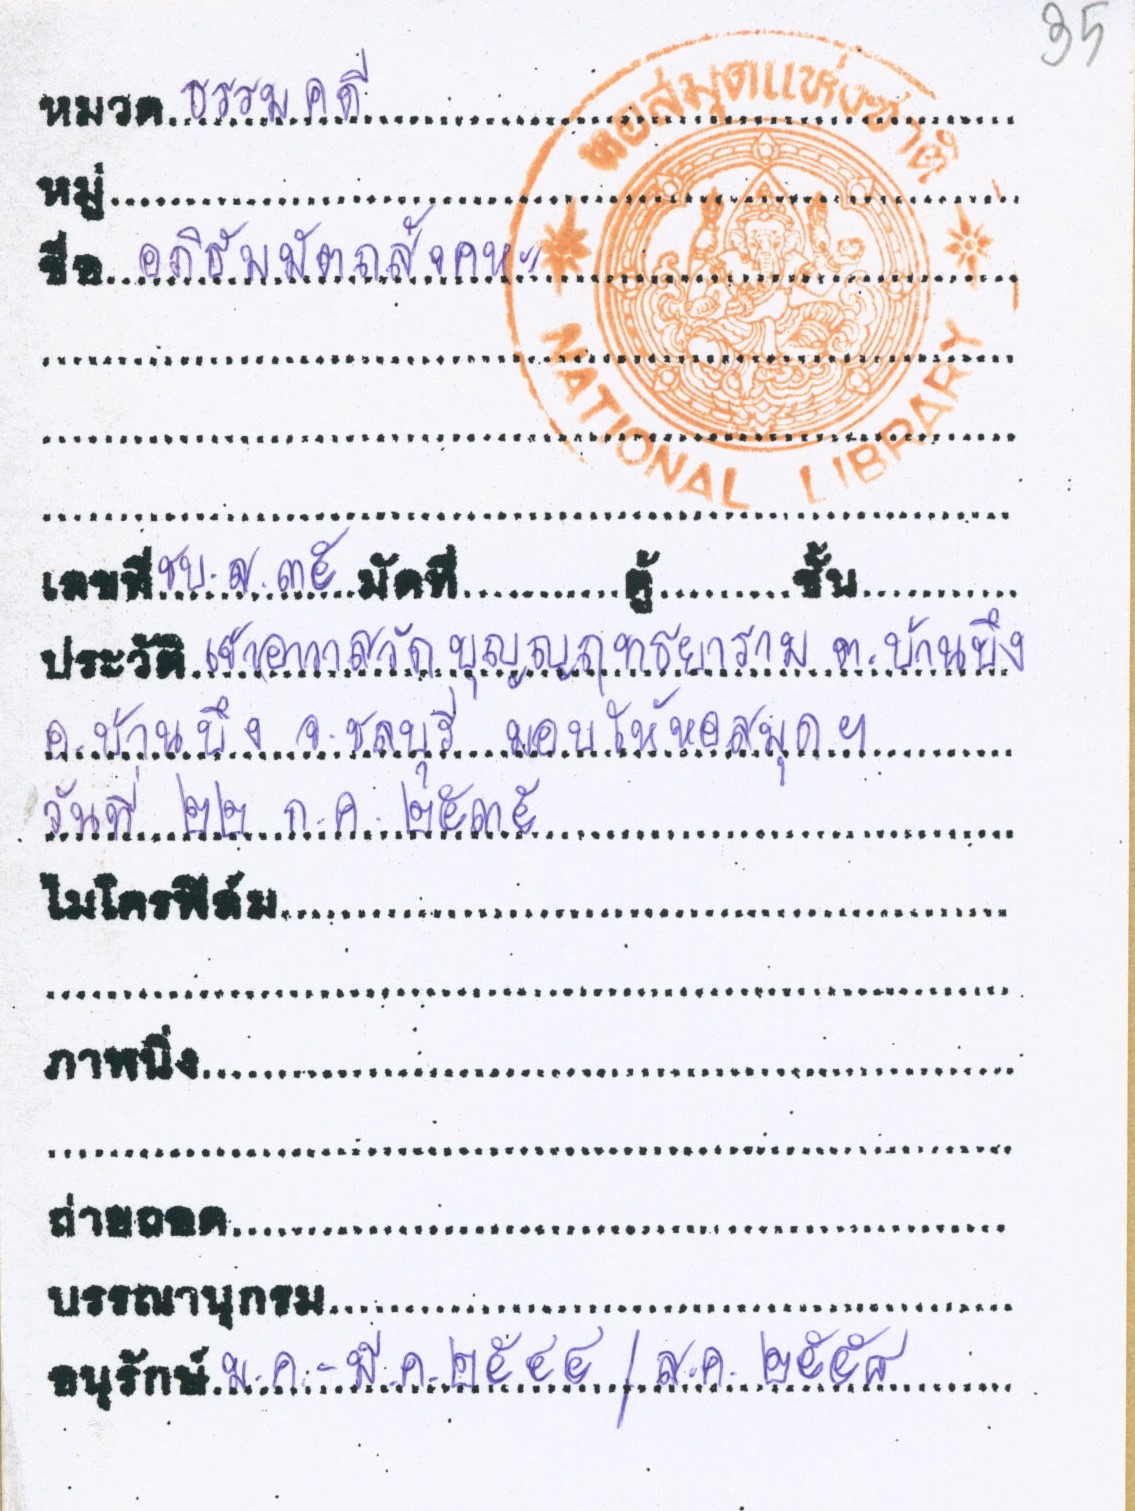 35
หมวด ธรรมคดี
หอสมุดแห่งชาติ
หมู่
ชื่อ อภิธัมมัตถสังคหะ
NATIONAL LIBRARY
เลขที่ ชบ.ส.๓๕ มัดที่ ตู้ ชั้น
ประวัติ เจ้าอาวาสวัดบุญญฤทธยาราม ต.บ้านบึง
อ.บ้านบึง จ.ชลบุรี มอบให้หอสมุดฯ
วันที่ ๒๒ ก.ค. ๒๕๓๕
ไมโครฟิล์ม
ภาพนิ่ง
ถ่ายถอด
บรรณานุกรม
อนุรักษ์ ม.ค.-มี.ค.๒๕๔๔ / ส.ค. ๒๕๕๘